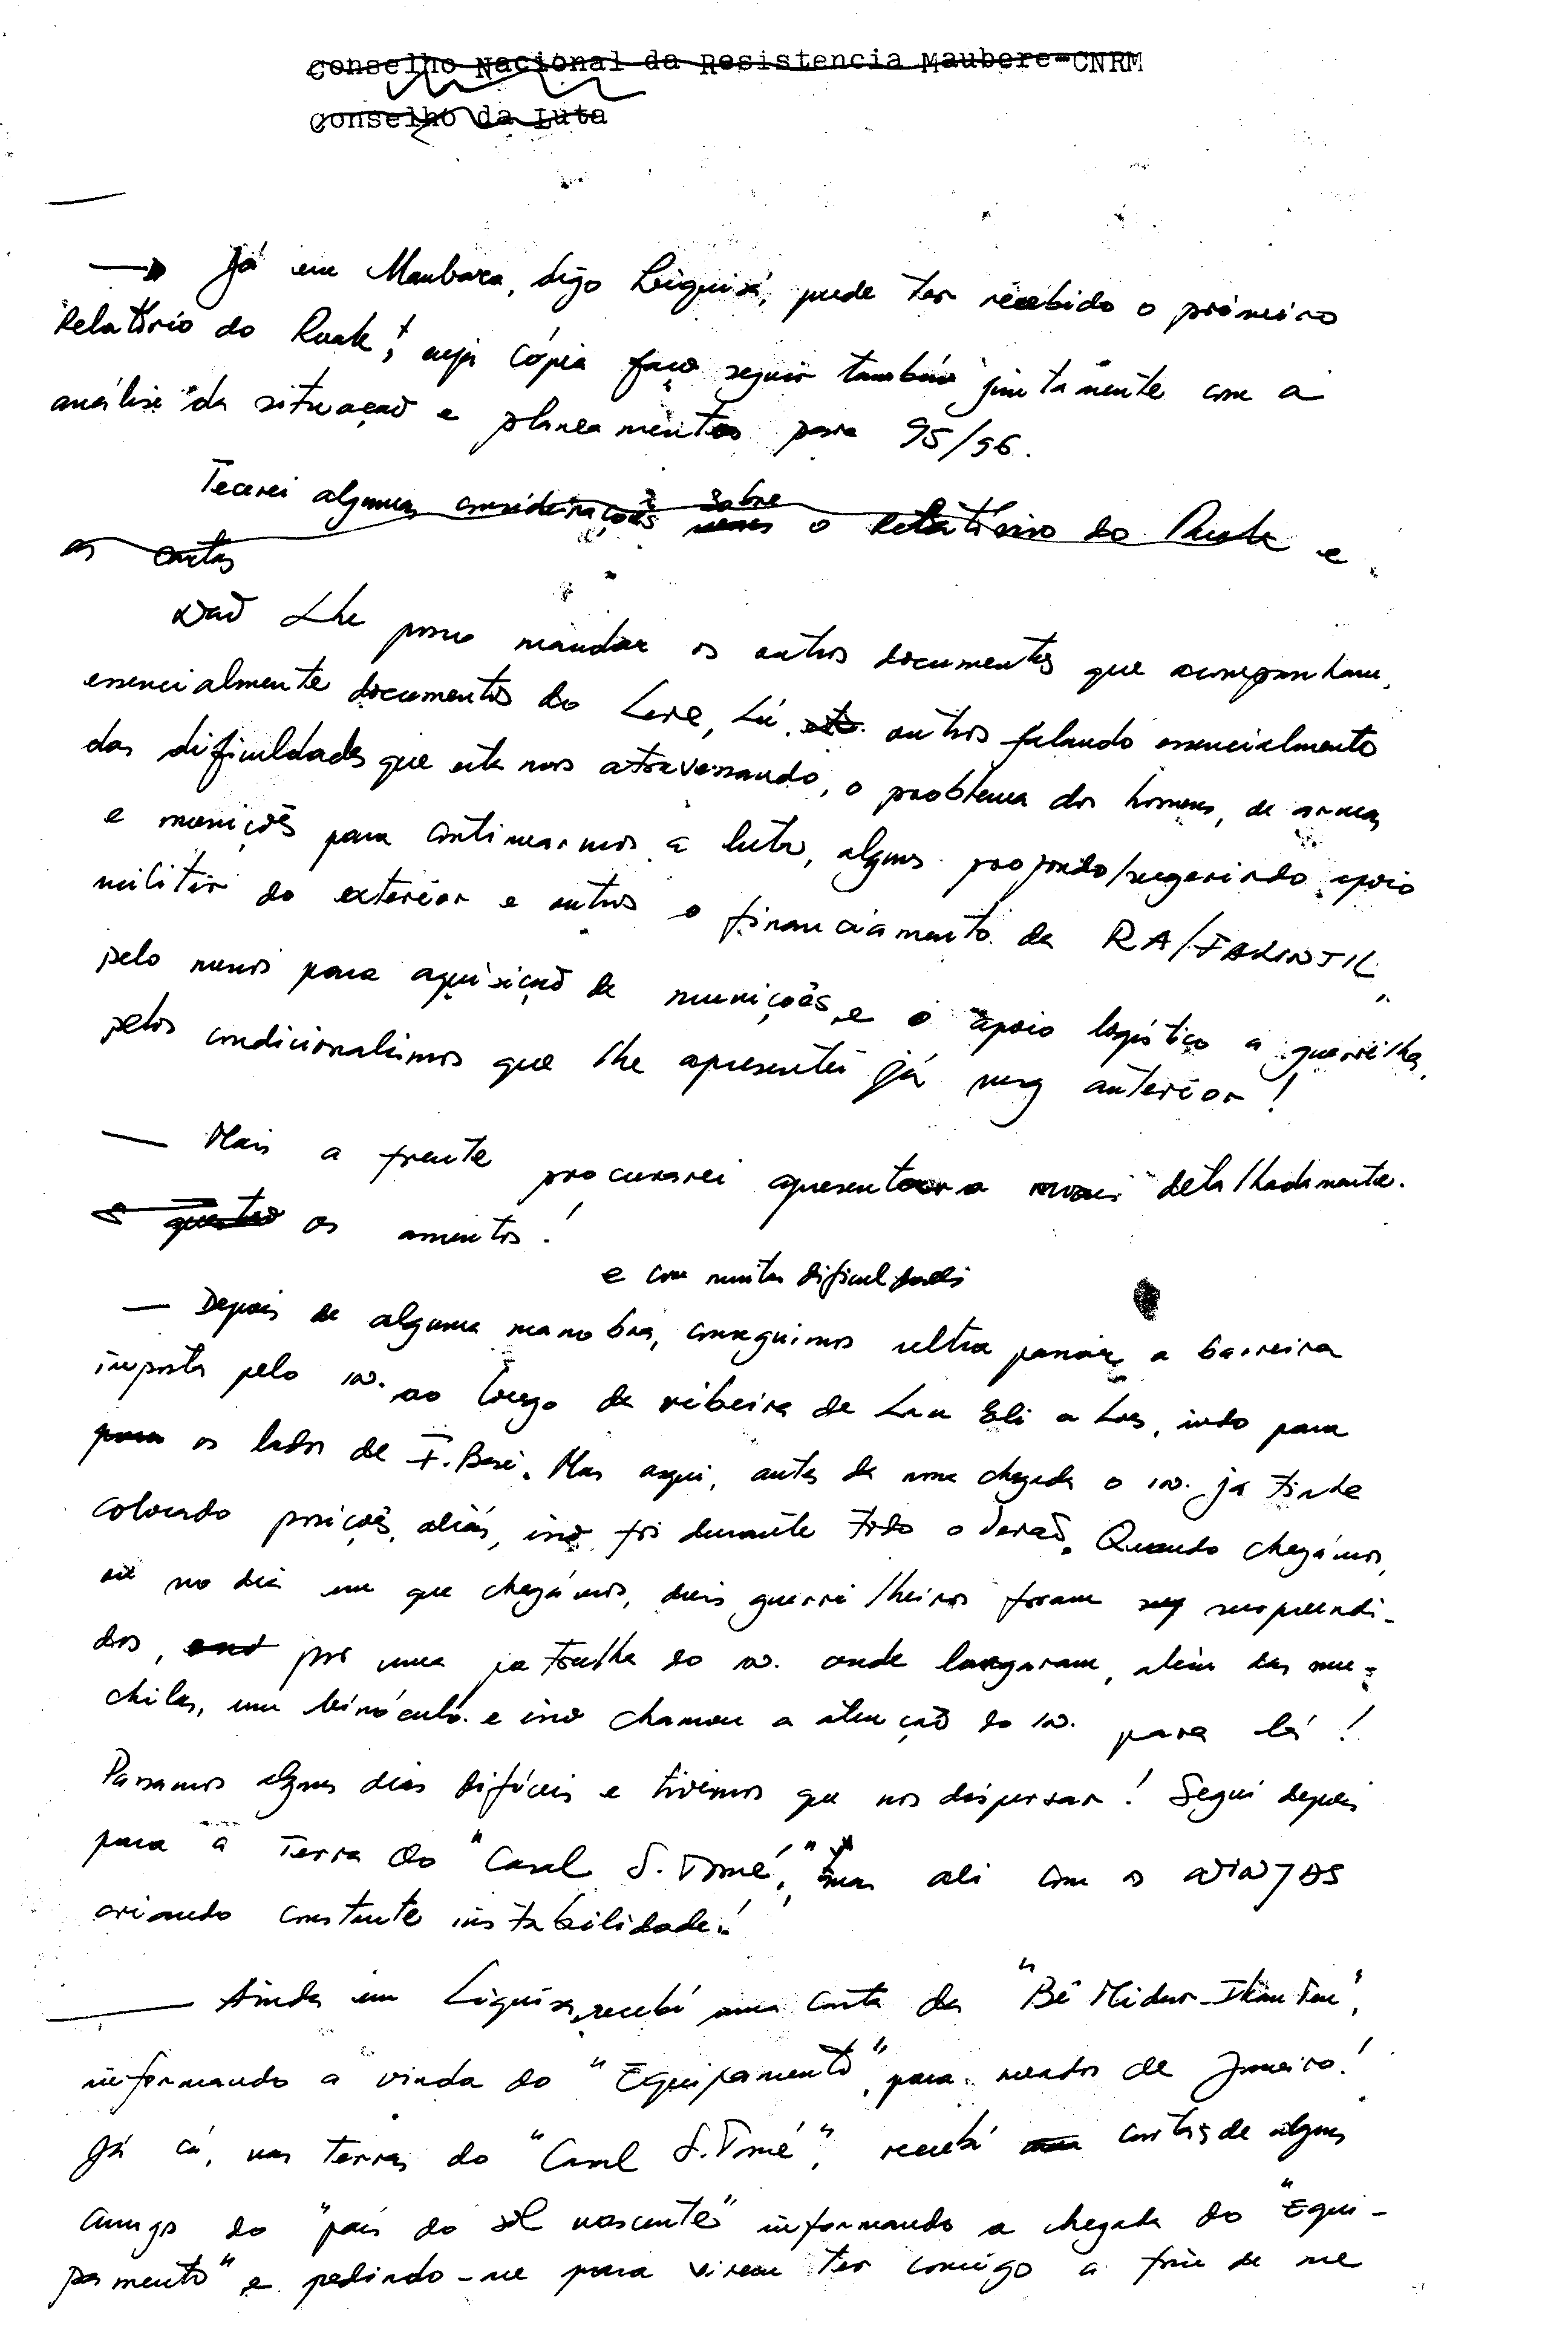 Conselho Nacional da Resistencia Maubere-CNRM
Conselho da Luta
→ Já em Maubara, digo Liquisá, pude ter recebido o primeiro
Relatório do Ruak, cuja cópia faço seguir também juntamente com a
análise da situação e planeamentos para 95/96.
Tecerei algumas considerações sobre o Relatório do Ruak e
as cartas
Não Lhe posso mandar os outros documentos que acompanham,
essencialmente documentos do Lere, Lú, outros falando essencialmente
das dificuldades que estamos atravessando, o problema dos homens, de armas
e munições para continuarmos a luta, alguns propondo/sugerindo apoio
militar do exterior e outros o financiamento da RA/FALINTIL,
pelo menos para aquisição de munições, e o apoio logístico a guerrilha,
pelos condicionalismos que lhe apresentei já na anterior!
— Mais a frente procurarei apresentar mais detalhadamente.
questão os assuntos!
e com muitas dificuldades
— Depois de alguma manobra, conseguimos ultrapassar a barreira
imposta pelo in. ao longo da ribeira de Lau Eli a Loes, indo para
para os lados de F. Besi. Mas aqui, antes da nossa chegada o in. já tinha
colocado posições, aliás, isso foi durante todo o Verão. Quando chegámos,
ou no dia em que chegámos, dois guerrilheiros foram surpreendi-
dos, por uma patrulha do in. onde largaram, além das mo-
chilas, um binóculo e isso chamou a atenção do in. para lá!
Passamos alguns dias difíceis e tivemos que nos dispersar! Seguí depois
para a Terra do "Casal S. Tomé", mas ali com os NINJAS
criando constante instabilidade!
— Ainda em Liquisa, recebí uma carta da "Bê Midar-Ikan Tau",
informando a vinda do "Equipamento", para meados de Janeiro!
Já cá, nas terras do "Casal S. Tomé", recebí uma cartas de alguns
amigos do "país do sol nascente" informando a chegada do "Equi-
pamento" e pedindo-me para virem ter comigo a fim de me